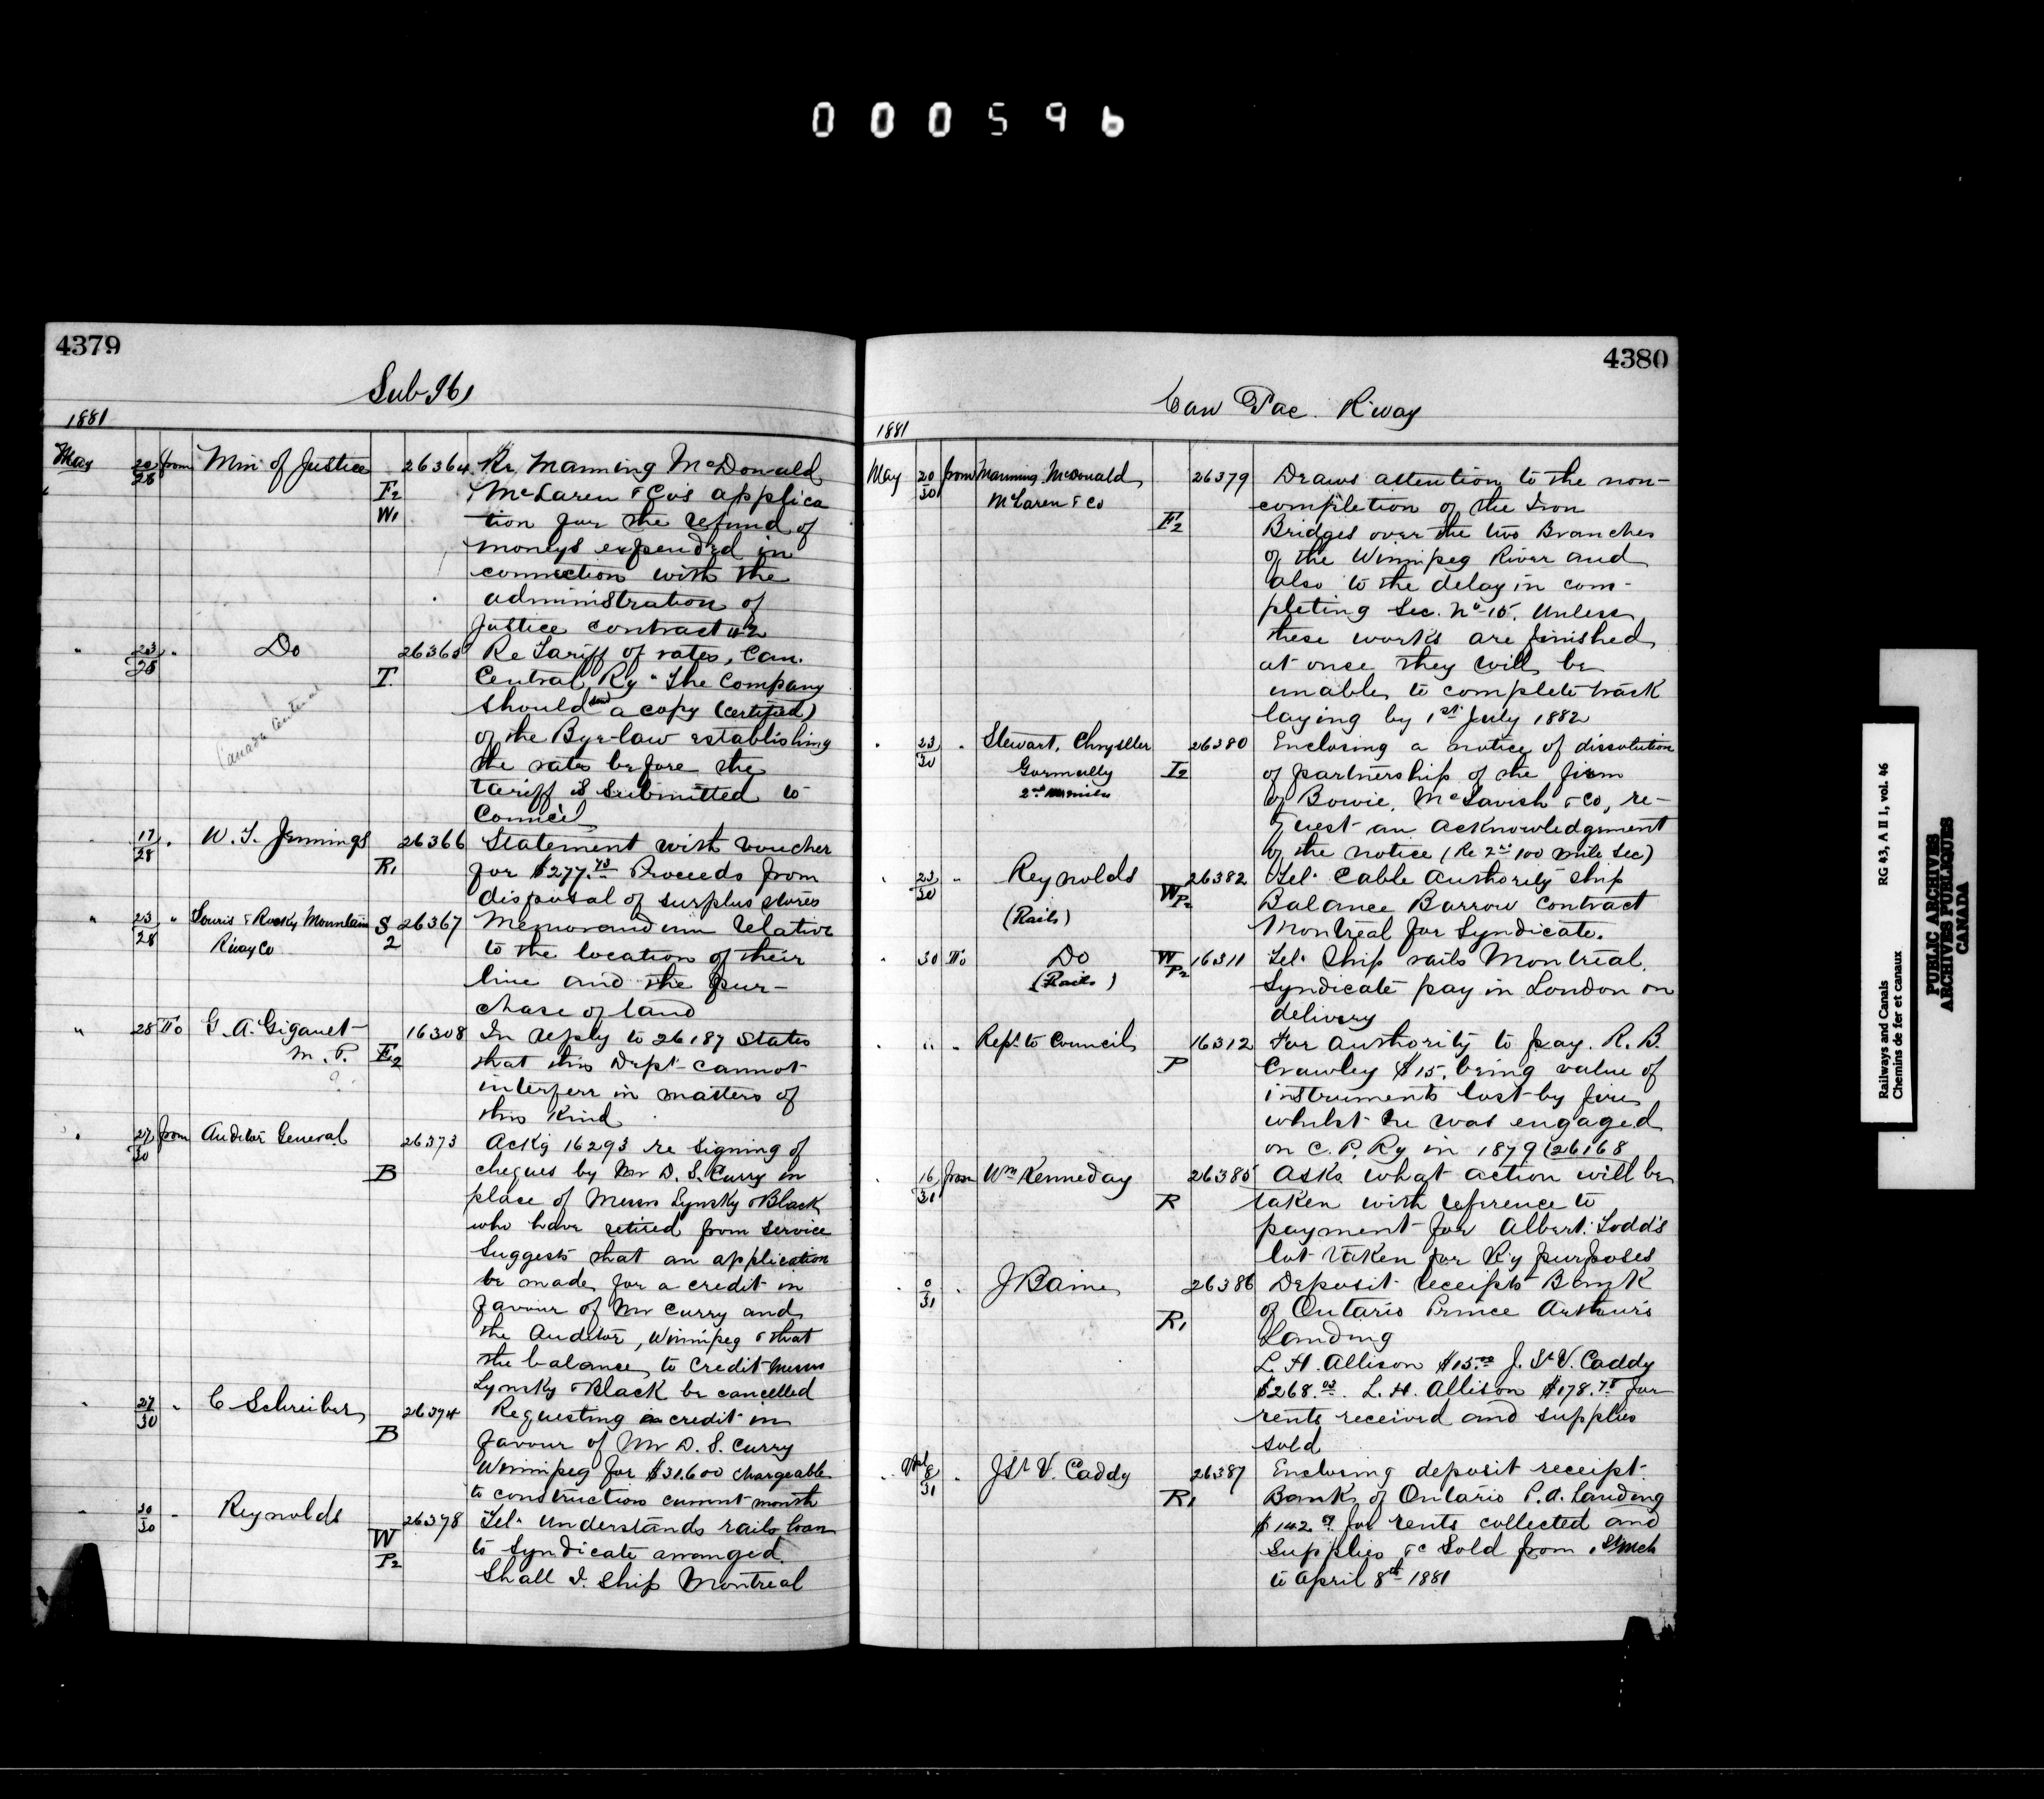 000596
4379
Sub 96
1881
May 20/28 from Min of Justice 26364 Re Manning McDonald
F2 McLaren & Co's applica
W1 tion for the refund of
moneys expended in
connection with the
administration of
Justice contract 42
" 23/28 " Do 26365 Re Tariff of rates, Can.
T. Central Ry "The Company
should send a copy (certified)
of the Bye-law establishing
Canada Central
the rates before the
tariff is submitted to
Council
" 17/28 " W. T. Jennings 26366 Statement with voucher
R1 for $277.43 Proceeds from
disposal of surplus stores
" 23/28 " Souris & Rocky Mountain S 26367 Memorandum relative
Rway Co 2 to the location of their
line and the pur-
chase of land
" 28 To G. A. Gigault 16308 In reply to 26187 states
M. P. E2 that this Dept cannot
interfere in matters of
this kind
" 27/30 from Auditor General 26373 Ackg 16293 re signing of
B cheques by Mr D. S. Curry in
place of Messrs Lynsky & Black
who have retired from service
Suggests that an application
be made for a credit in
favour of Mr Curry and
the Auditor, Winnipeg & that
the balance to credit Messrs
Lynsky & Black be cancelled
" 27/30 " C Schreiber 26374 Requesting a credit in
B favour of Mr D. S. Curry
Winnipeg for $31.600 chargeable
to construction current month
" 30/30 " Reynolds 26378 Tel. Understands rails loan
W to Syndicate arranged.
P2 Shall I ship Montreal
4380
Can Pac. R'way
1881
May 20/30 from Manning McDonald 26379 Draws attention to the non-
McLaren & Co completion of the Iron
F2 Bridges over the two Branches
of the Winnipeg River and
also to the delay in com-
pleting Sec. No 15. Unless
these works are finished
at once they will be
unable to complete track
laying by 1st July 1882
" 23/30 " Stewart, Chrysler 26380 Enclosing a notice of dissolution
Gormully I2 of partnership of the firm
of Bowie, McTavish & Co, re-
quest an acknowledgement
of the notice (Re 2nd 100 mile Sec)
" 23/30 " Reynolds W 26382 Tel. Cable Authority ship
(Rails) P2 Balance Barrow Contract
Montreal for Syndicate.
" 30 To Do W 16311 Tel. Ship rails Montreal.
(Rails) P2 Syndicate pay in London on
delivery
" " " Rept. to Council 16312 For authority to pay. R. B.
P Crawley $15. being value of
instruments lost by fire
whilst he was engaged
on C. P. Ry in 1879 (26168
" 16/31 from Wm Kenneday 26385 Asks what action will be
R taken with reference to
payment for Albert Todd's
lot taken for Ry purposes
" 0/31 " J Baine 26386 Deposit receipts Bank
of Ontario Prince Arthur's
R1 Landing
L. H. Allison $15.00 J. St V. Caddy
$268.03. L. H. Allison $178.75 for
rents received and supplies
sold
" Apl 8/31 " J St V. Caddy 26387 Enclosing deposit receipt.
R1 Bank of Ontario P. A. Landing
$142.09 for rents collected and
Supplies &c sold from 1st Mch
to April 8th 1881
Railways and Canals RG 43, A II 1, vol. 46
Chemins de fer et canaux
PUBLIC ARCHIVES
ARCHIVES PUBLIQUES
CANADA